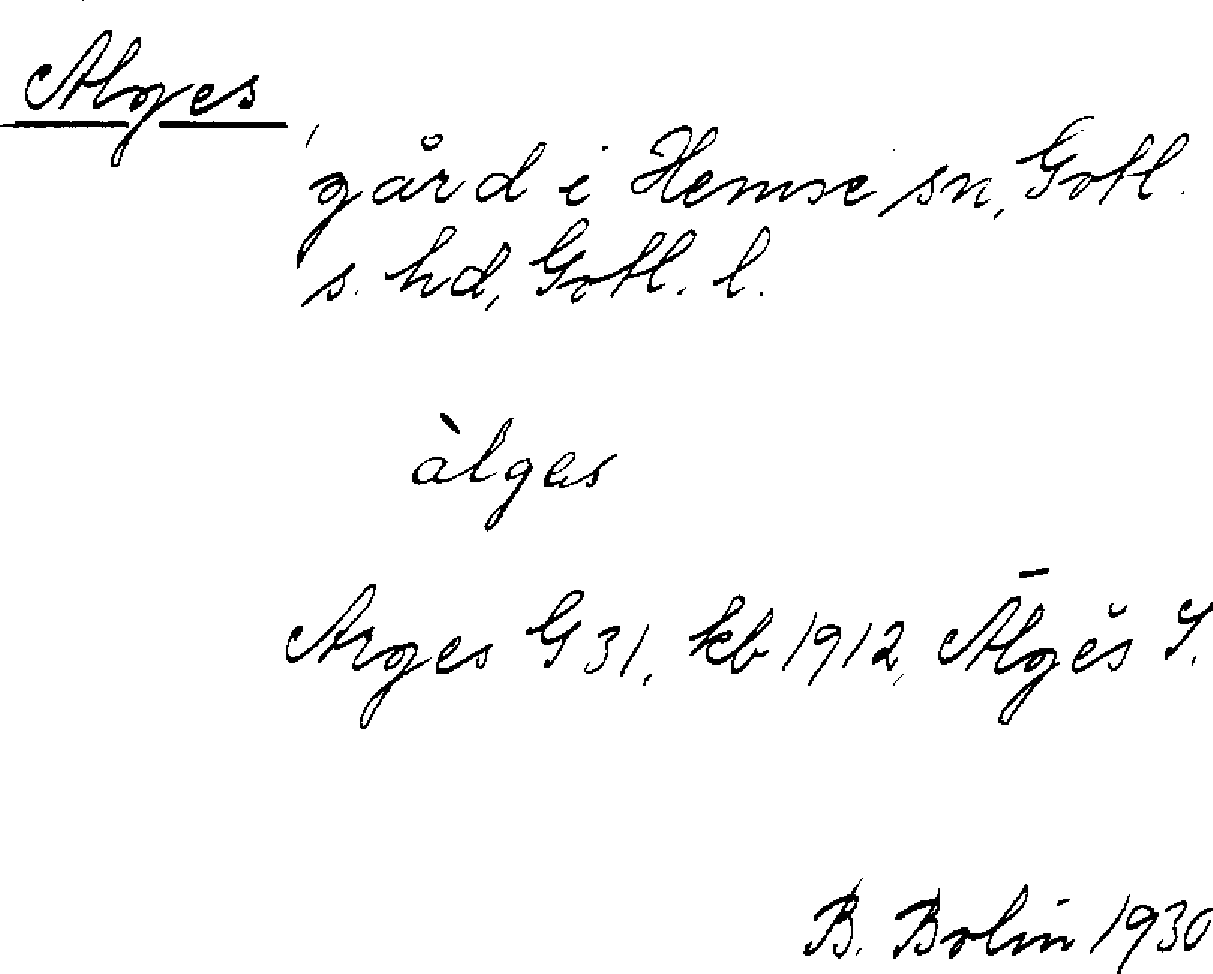 Alges
gård i Hemse sn, Gotl.
s. hd, Gotl. l.
àlgas
Arges G 31, kb 1912, Ālgĕs S.
B. Bolin 1930